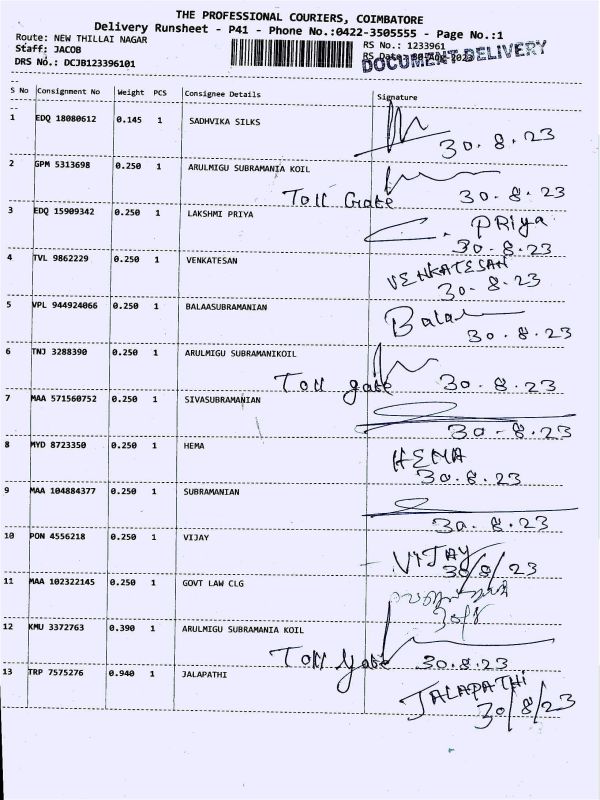 THE PROFESSIONAL COURIERS, COIMBATORE
Delivery Runsheet - P41 - Phone No.:0422-3505555 - Page No.:1
Route: NEW THILLAI NAGAR
RS No.: 1233961
Staff: JACOB
DOCUMENT DELIVERY
DRS No.: DCJB123396101
S No Consignment No Weight PCS Consignee Details Signature
1 EDQ 18080612 0.145 1 SADHVIKA SILKS
30.8.23
2 GPM 5313698 0.250 1 ARULMIGU SUBRAMANIA KOIL
Toll Gate 30.8.23
3 EDQ 15909342 0.250 1 LAKSHMI PRIYA PRiya
30.8.23
4 TVL 9862229 0.250 1 VENKATESAN VENKATESAN
30.8.23
5 VPL 944924066 0.250 1 BALAASUBRAMANIAN Bala
30.8.23
6 TNJ 3288390 0.250 1 ARULMIGU SUBRAMANIKOIL
Toll gate 30.8.23
7 MAA 571560752 0.250 1 SIVASUBRAMANIAN
30-8.23
8 MYD 8723350 0.250 1 HEMA HEMA
30.8.23
9 MAA 104884377 0.250 1 SUBRAMANIAN
30.8.23
10 PON 4556218 0.250 1 VIJAY VIJAY
30/8/23
11 MAA 102322145 0.250 1 GOVT LAW CLG
12 KMU 3372763 0.390 1 ARULMIGU SUBRAMANIA KOIL
Toll gate 30.8.23
13 TRP 7575276 0.940 1 JALAPATHI JALAPATHi
30/8/23